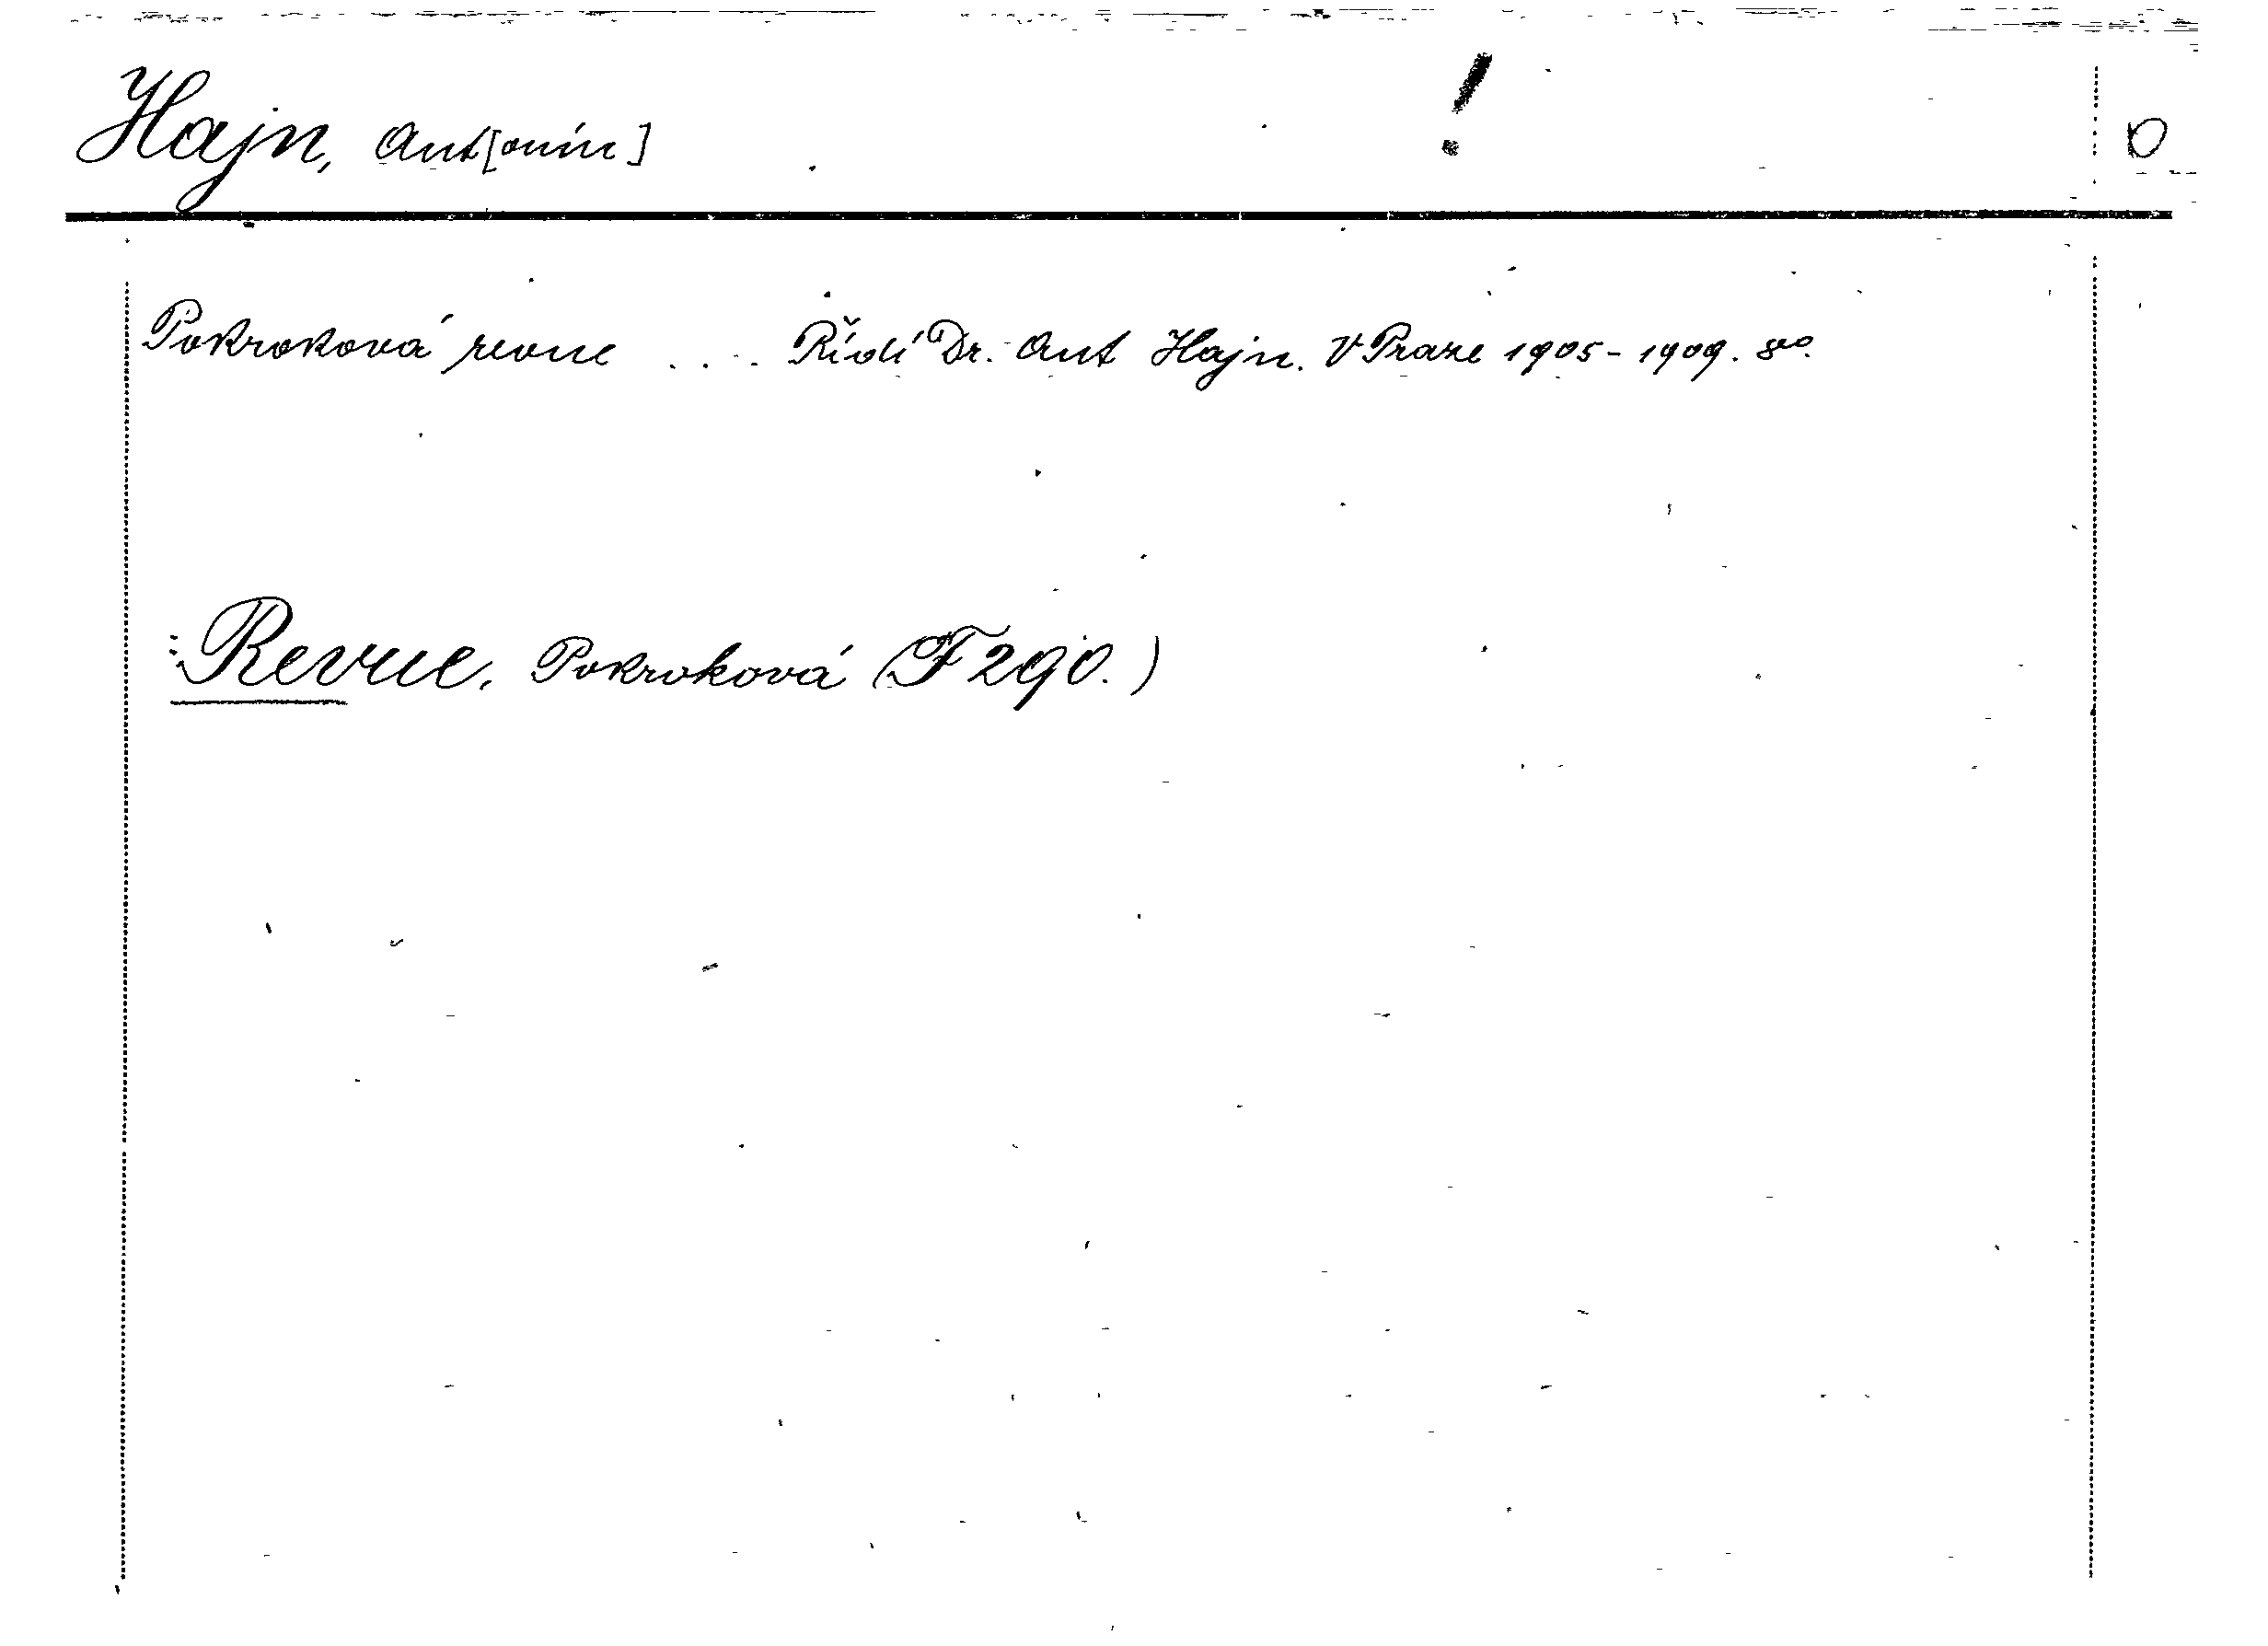 Hajn, Ant[onín] ! O
Pokroková revue . . . Řídí Dr. Ant Hajn. V Praze 1905-1909. 8vo.
: Revue, Pokroková (F 290.)